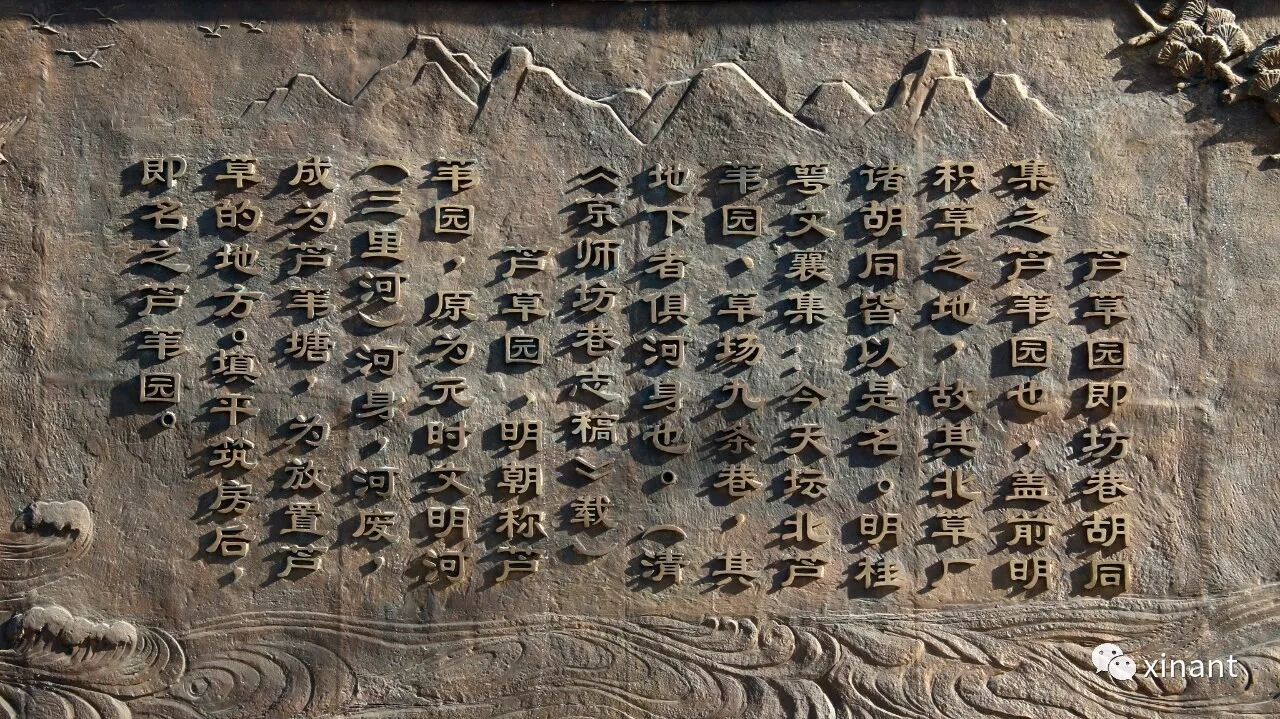 芦草园即坊巷胡同
集之芦苇园也，盖前明
积草之地，故其北草厂
诸胡同皆以是名。明桂
萼文襄集：今天坛北芦
苇园，草场九条巷，其
地下者俱河身也。（清
《京师坊巷志稿》载）
芦草园，明朝称芦
苇园，原为元时文明河
（三里河）河身，河废，
成为芦苇塘，为放置芦
草的地方。填平筑房后，
即名之芦苇园。
xinant